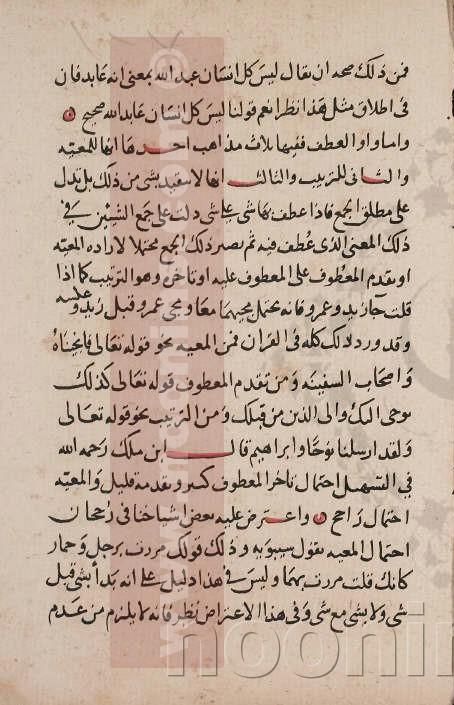 فمن ذلك صحه ان يقال ليس كل انسان عبد الله بمعنى انه عابد فان
فى اطلاق مثل هذا نظرا نعم قولنا ليس كل انسان عابد الله صحيح
واما واو العطف ففيها ثلاث مذاهب احدها انها للمعيه
والثانى للترتيب والثالث انها لا تفيد بشى من ذلك بل تدل
على مطلق الجمع فاذا عطف بها شى على شى دلت على جمع الشيئين فى
ذلك المعنى الذى عُطف فيه ثم يصير ذلك الجمع محتملا لاراده المعيه
او تقدم المعطوف على المعطوف عليه او تاخره وهو الترتيب كما اذا
قلت جا زيد وعمرو فانه يحتمل مجيهما معا ومجى عمرو قبل زيد وعكسه
وقد ورد ذلك كله فى القران فمن المعيه نحو قوله تعالى فانجيناه
واصحاب السفينه ومن تقدم المعطوف قوله تعالى كذلك
يوحى اليك والى الذين من قبلك ومن الترتيب نحو قوله تعالى
ولقد ارسلنا نوحا وابراهيم قال ابن ملك رحمه الله
فى التسهيل احتمال تاخر المعطوف كثير وتقدمه قليل والمعيه
احتمال راجح واعترض عليه بعض اشياخنا فى رجحان
احتمال المعيه بقول سيبويه وذلك قولك مررت برجل وحمار
كانك قلت مررت بهما وليس فى هذا دليل على انه بدأ بشى قبل
شى ولا بشى مع شى وفى هذا الاعتراض نظر فانه لا يلزم من عدم
noonin